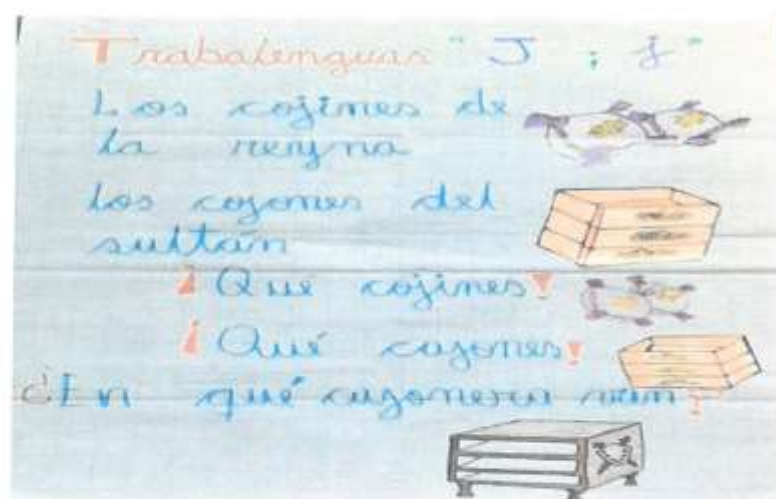 Trabalenguas "J ; j"
Los cojines de
la reyna
los cajones del
sultán
¡Qué cojines!
¡Qué cajones!
¿En qué cajonera van?